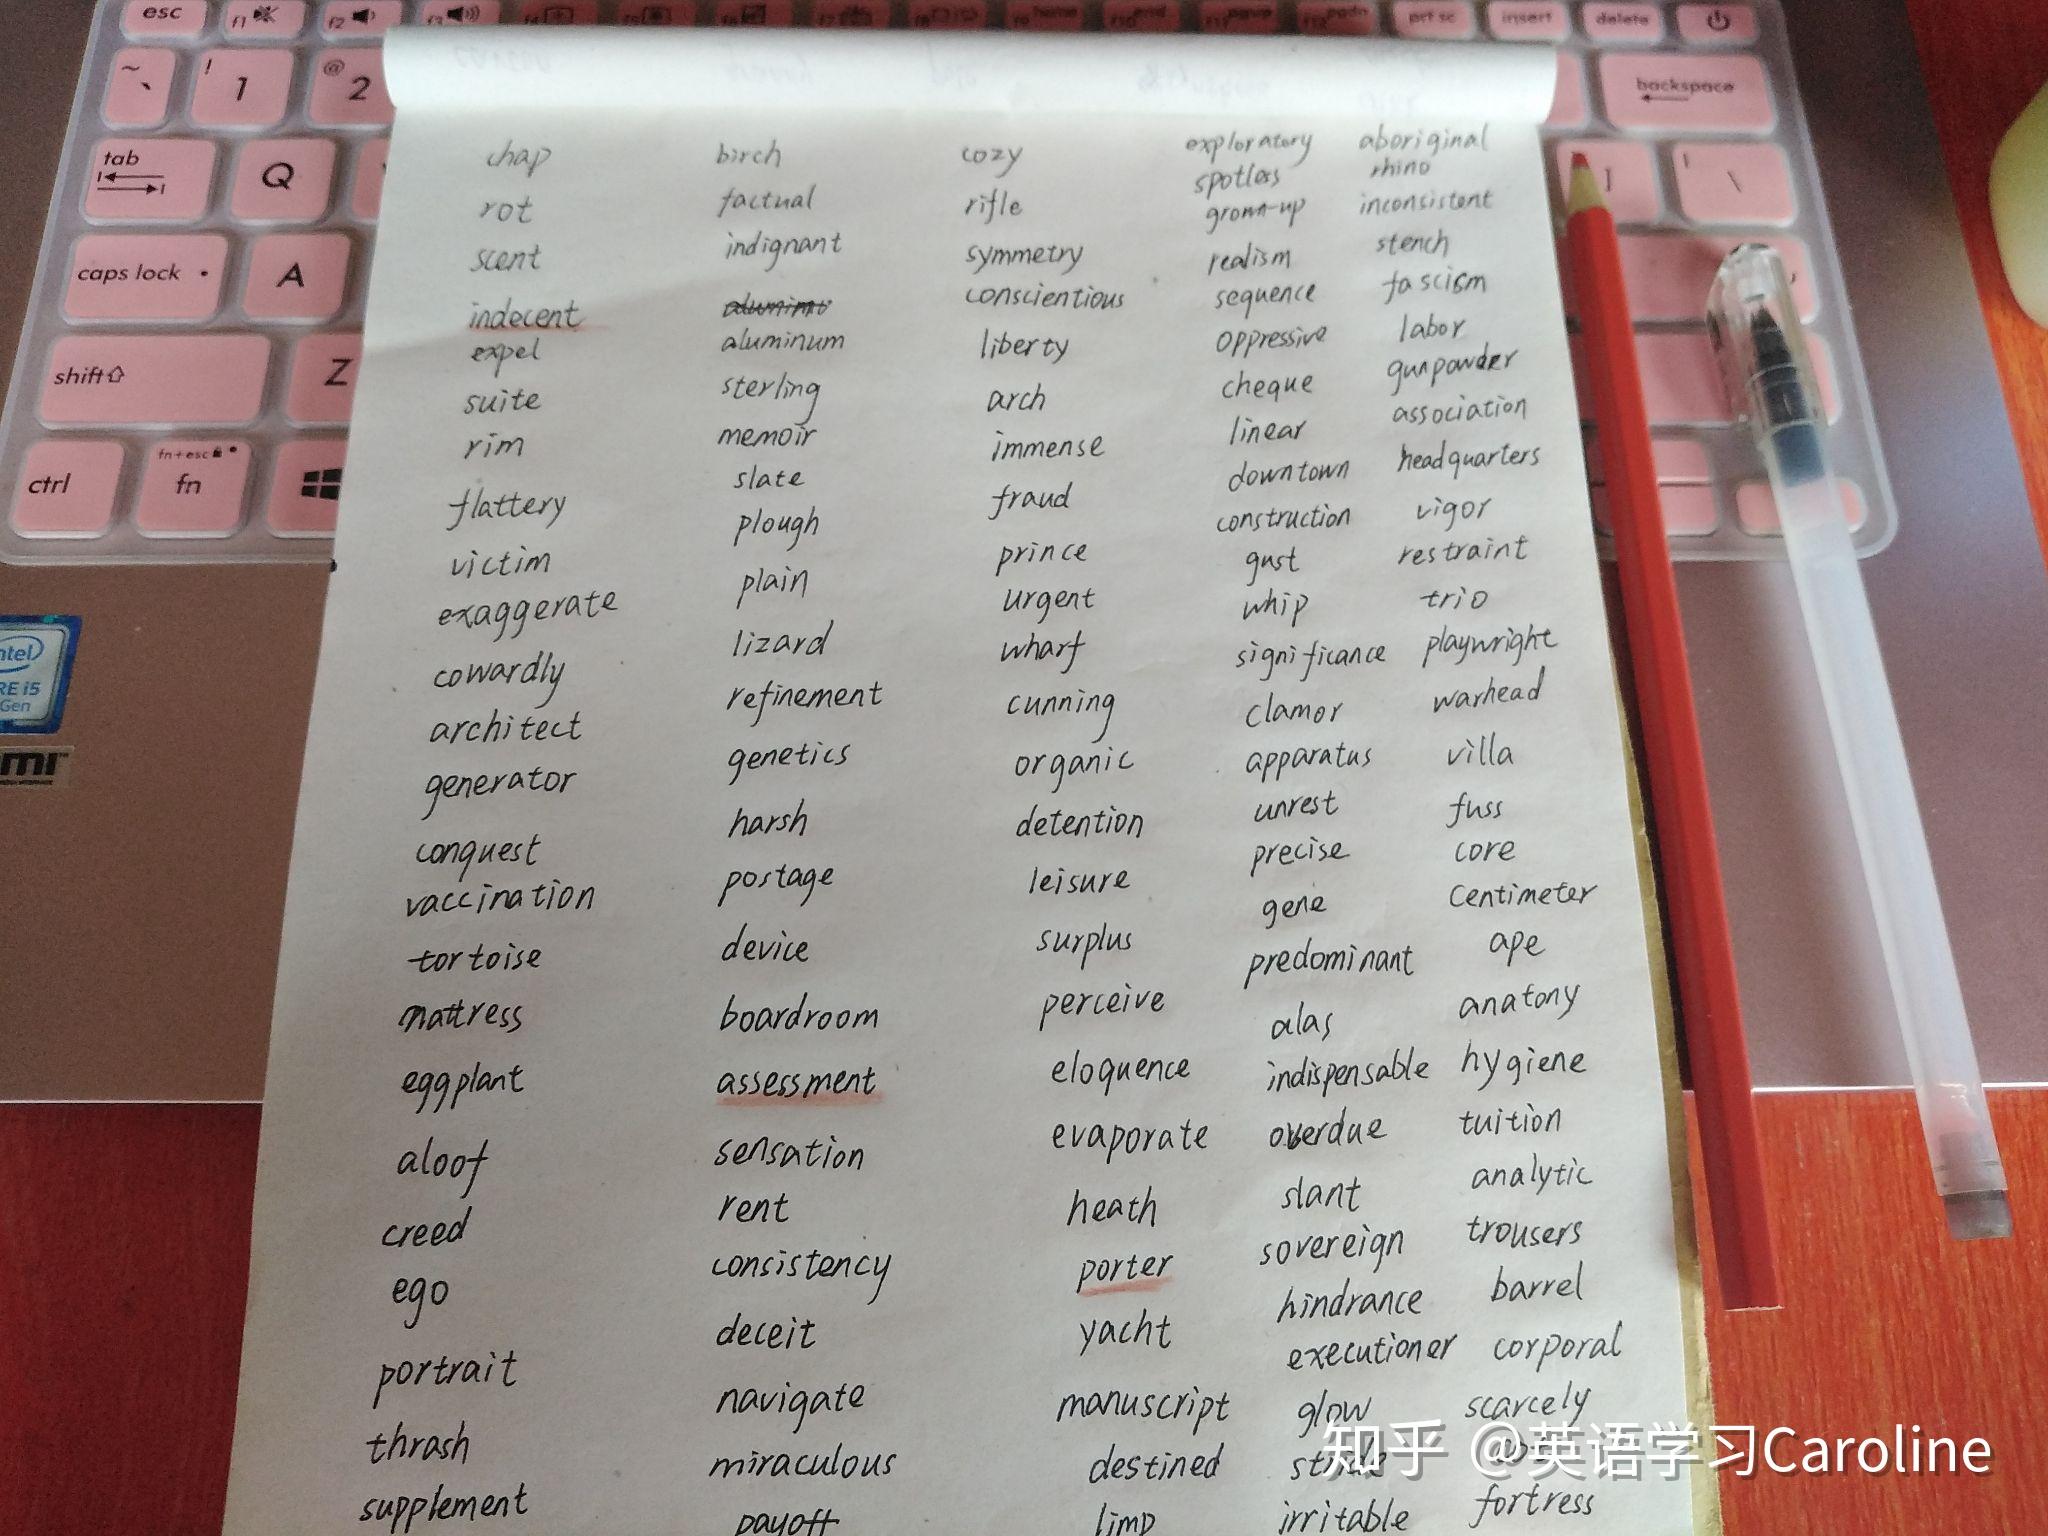 esc
f1
f2
f3
home
end
prt sc
insert
delete
~ `
! 1
@ 2
backspace
tab
Q
]
\
caps lock
A
shift
Z
ctrl
fn+esc
fn
intel
CORE i5
Gen
chap
rot
scent
indecent
expel
suite
rim
flattery
victim
exaggerate
cowardly
architect
generator
conquest
vaccination
tortoise
mattress
eggplant
aloof
creed
ego
portrait
thrash
supplement
birch
factual
indignant
aluminum
sterling
memoir
slate
plough
plain
lizard
refinement
genetics
harsh
postage
device
boardroom
assessment
sensation
rent
consistency
deceit
navigate
miraculous
payoff
cozy
rifle
symmetry
conscientious
liberty
arch
immense
fraud
prince
urgent
wharf
cunning
organic
detention
leisure
surplus
perceive
eloquence
evaporate
heath
porter
yacht
manuscript
destined
limp
exploratory
spotless
grown-up
realism
sequence
oppressive
cheque
linear
downtown
construction
gust
whip
significance
clamor
apparatus
unrest
precise
gene
predominant
alas
indispensable
overdue
slant
sovereign
hindrance
executioner
glow
stride
irritable
aboriginal
rhino
inconsistent
stench
fascism
labor
gunpowder
association
headquarters
vigor
restraint
trio
playwright
warhead
villa
fuss
core
centimeter
ape
anatony
hygiene
tuition
analytic
trousers
barrel
corporal
scarcely
fortress
知乎 @英语学习Caroline